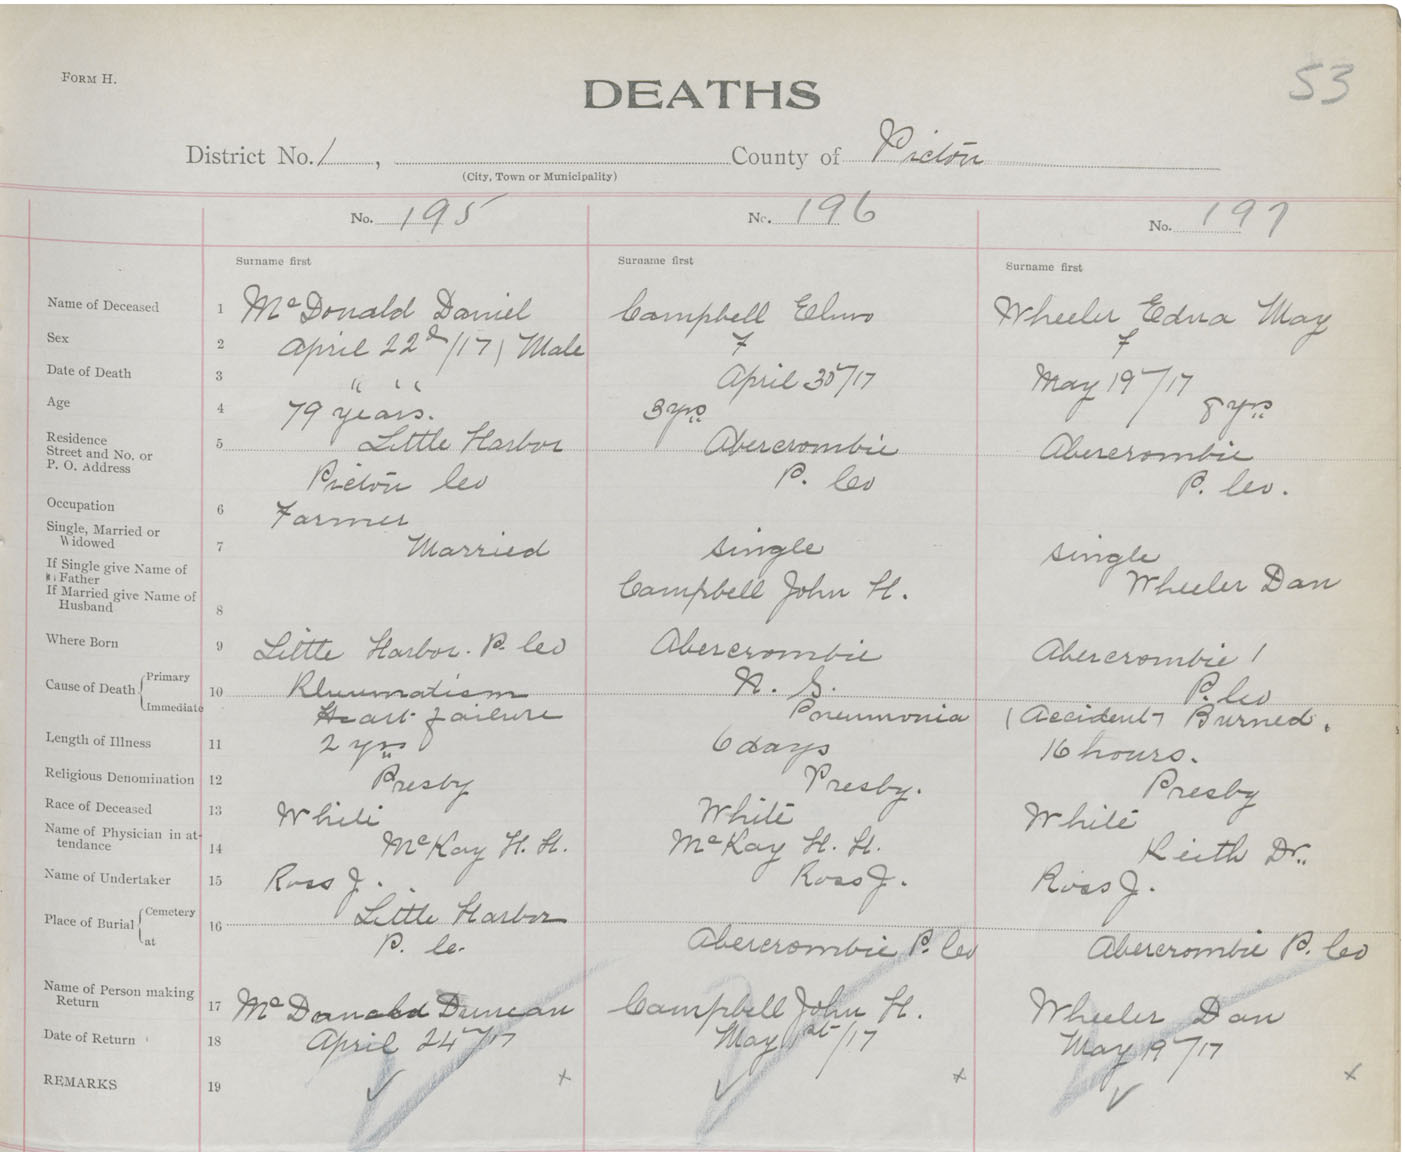 FORM H.
DEATHS
53
District No. 1, County of Pictou
(City, Town or Municipality)
No. 195 No. 196 No. 197
Surname first Surname first Surname first
Name of Deceased 1 McDonald Daniel Campbell Elmo Wheeler Edna May
Sex 2 April 22d/17 / Male F F
Date of Death 3 " " " April 30/17 May 19/17
Age 4 79 years. 3 yrs 8 yrs
Residence
Street and No. or
P. O. Address
5 Little Harbor Abercrombie Abercrombie
Pictou Co P. Co P. Co.
Occupation 6 Farmer
Single, Married or
Widowed
7 Married single single
If Single give Name of
Father
If Married give Name of
Husband
8 Campbell John H. Wheeler Dan
Where Born 9 Little Harbor. P. Co Abercrombie Abercrombie /
Cause of Death { Primary 10 Rheumatism N. S. P. Co
Immediate Heart failure Pneumonia (Accident) Burned.
Length of Illness 11 2 yrs 6 days 16 hours.
Religious Denomination 12 Presby Presby. Presby
Race of Deceased 13 White White White
Name of Physician in at-
tendance
14 McKay H. H. McKay H. H. Keith Dr.
Name of Undertaker 15 Ross J. Ross J. Ross J.
Place of Burial { Cemetery 16 Little Harbor
at P. Co. Abercrombie P. Co Abercrombie P. Co
Name of Person making
Return
17 McDonald Duncan Campbell John H. Wheeler Dan
Date of Return 18 April 24/17 May 1st/17 May 19/17
REMARKS 19 ✓ x ✓ x ✓ x